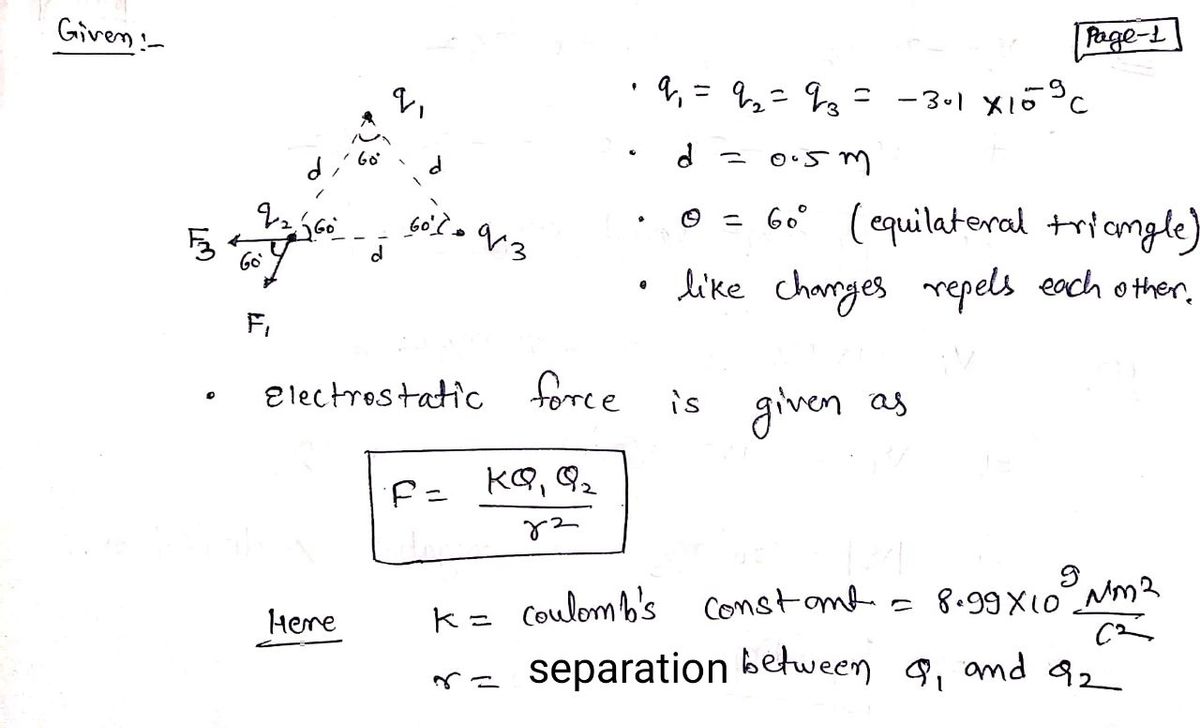 Given :-
Page-1
q₁
60°
d
d
q₂
60°
60°
q₃
d
F₃
60°
F₁
• q₁ = q₂ = q₃ = -3.1 × 10⁻⁹ C
• d = 0.5 m
• θ = 60° (equilateral triangle)
• like charges repels each other.
• Electrostatic force is given as
F = KQ₁ Q₂ / r²
Here K = coulomb's constant = 8.99 × 10⁹ Nm² / C²
r = separation between Q₁ and Q₂